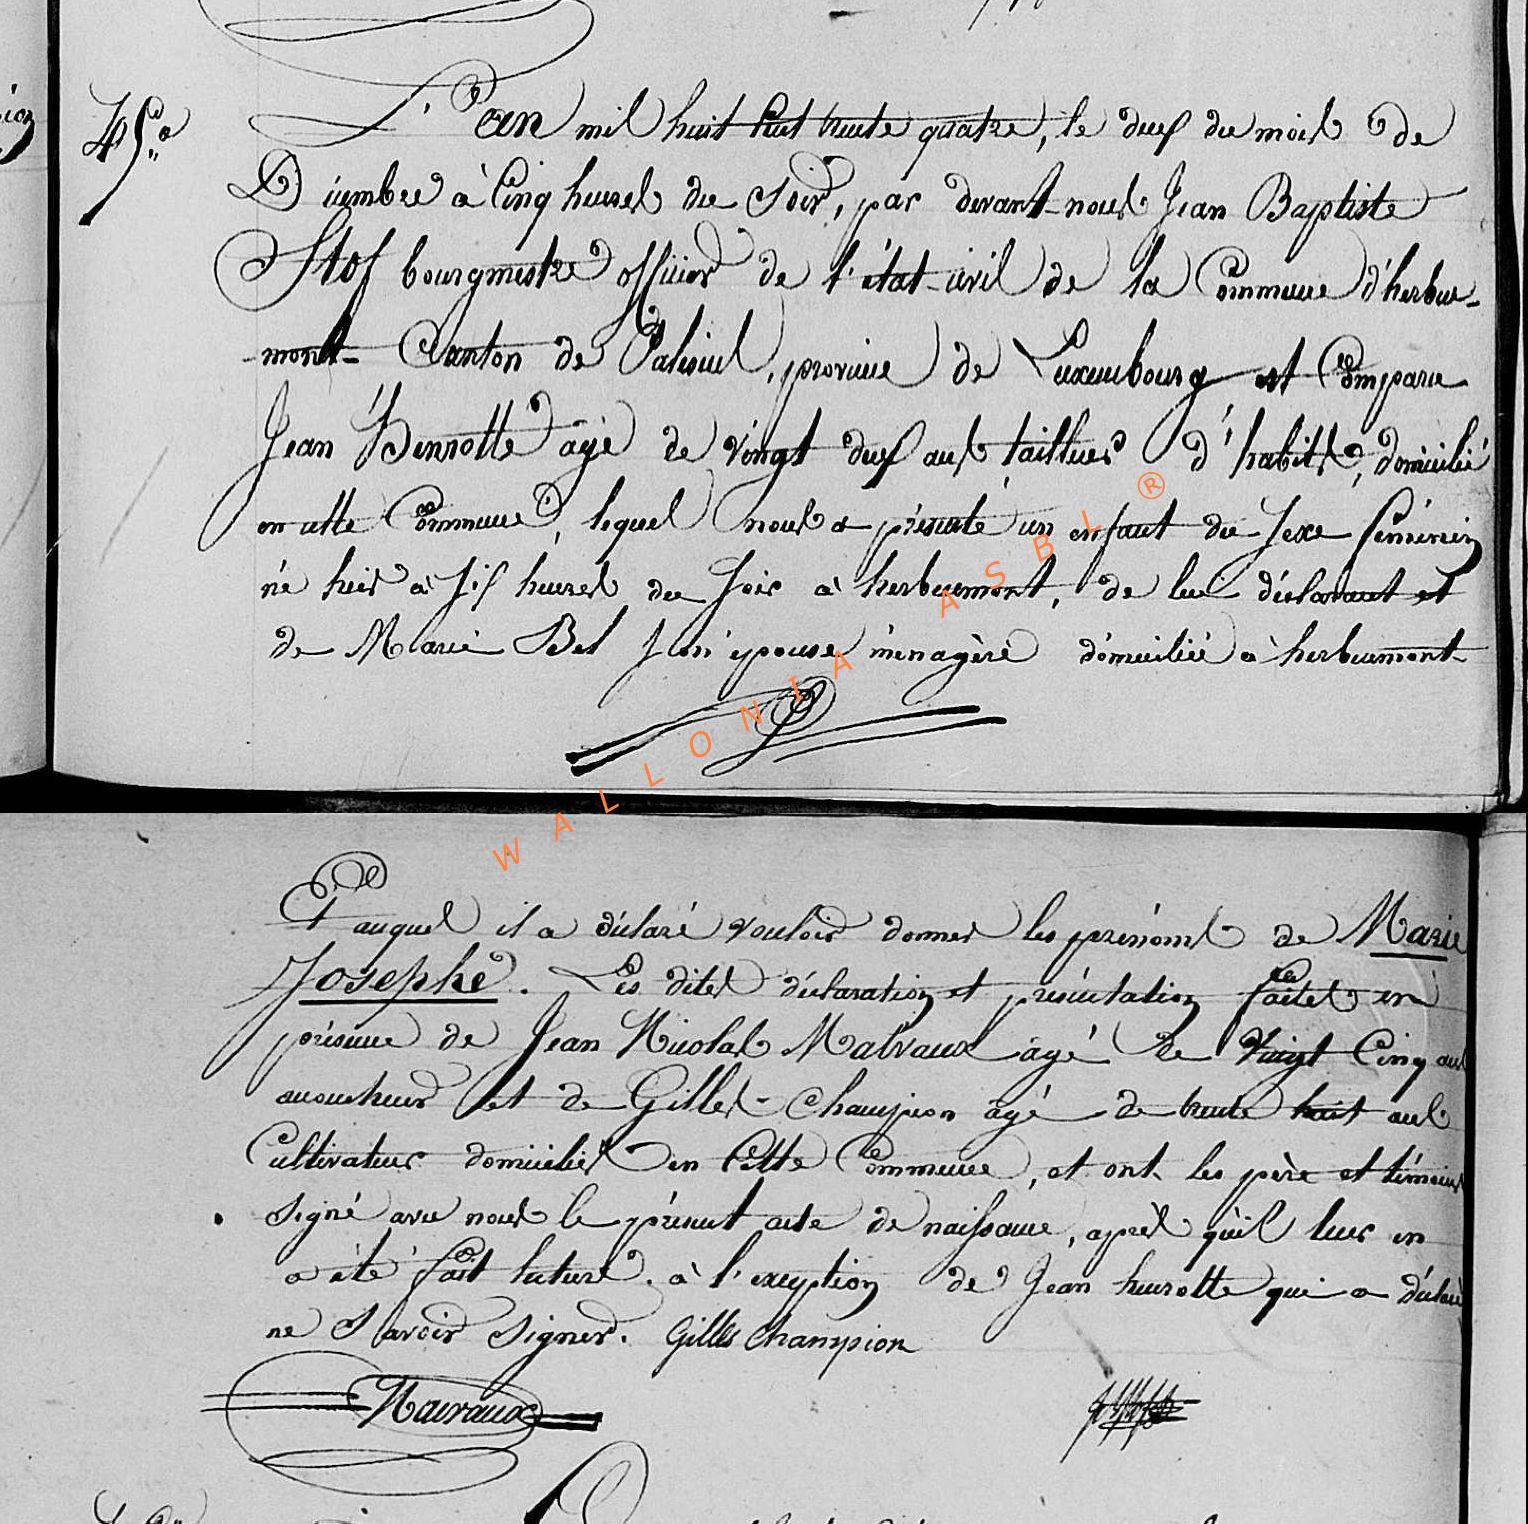 45.e
L'an mil huit cent trente quatre, le deux du mois de
Décembre à cinq heures du soir, par devant-nous Jean Baptiste
Stof bourgmestre officier de l'état-civil de la Commune d'herbeu-
mont Canton de Paliseul, province de Luxembourg est Comparu
Jean Henrotte âgé de vingt deux ans tailleur d'habits, domicilié
en cette Commune, lequel nous a présenté un enfant du sexe féminin
né hier à six heures du soir à herbeumont, de lui déclarant et
de Marie Bel son épouse ménagère domiciliée à herbeumont
Et auquel il a déclaré vouloir donner les prénoms de Marie
Josephe. Les dites déclaration et présentation faites en
présence de Jean Nicolas Malvaux âgé de vingt cinq ans
accoucheur et de Gilles Champion âgé de trente huit ans
Cultivateur domiciliés en cette Commune, et ont les père et témoins
signé avec nous le présent acte de naissance, après qu'il leur en
a été fait lecture. à l'exception de Jean henrotte qui a déclaré
ne savoir signer. Gilles Champion
WALLONIA ASBL ®